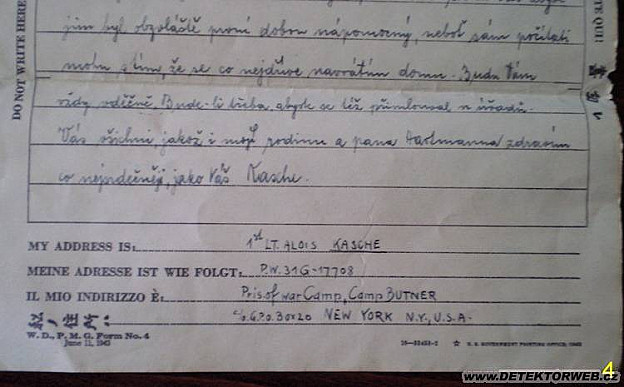 jim byl obzvláště první dobou nápomocný, neboť sám počítati
mohu s tím, že se co nejdříve navrátím domu. Budu Vám
vždy vděčně. Bude-li třeba, abyste se též přimlouval u úřadů.
Vás všichni, jakož i mojí rodinu a pana Hartmanna zdravím
co nejsrdečněji, jako Váš Kasche.
DO NOT WRITE HERE
TE QUI!
MY ADDRESS IS: 1st LT. ALOIS KASCHE
MEINE ADRESSE IST WIE FOLGT: P.W. 31G-17708
IL MIO INDIRIZZO È: Pris. of war Camp, Camp BUTNER
私ノ住所ハ: c/o G.P.O. 30x20 NEW YORK N.Y., U.S.A.
W. D., P. M. G. Form No. 4
June 11, 1943
☆ U. S. GOVERNMENT PRINTING OFFICE
4
WWW.DETEKTORWEB.CZ